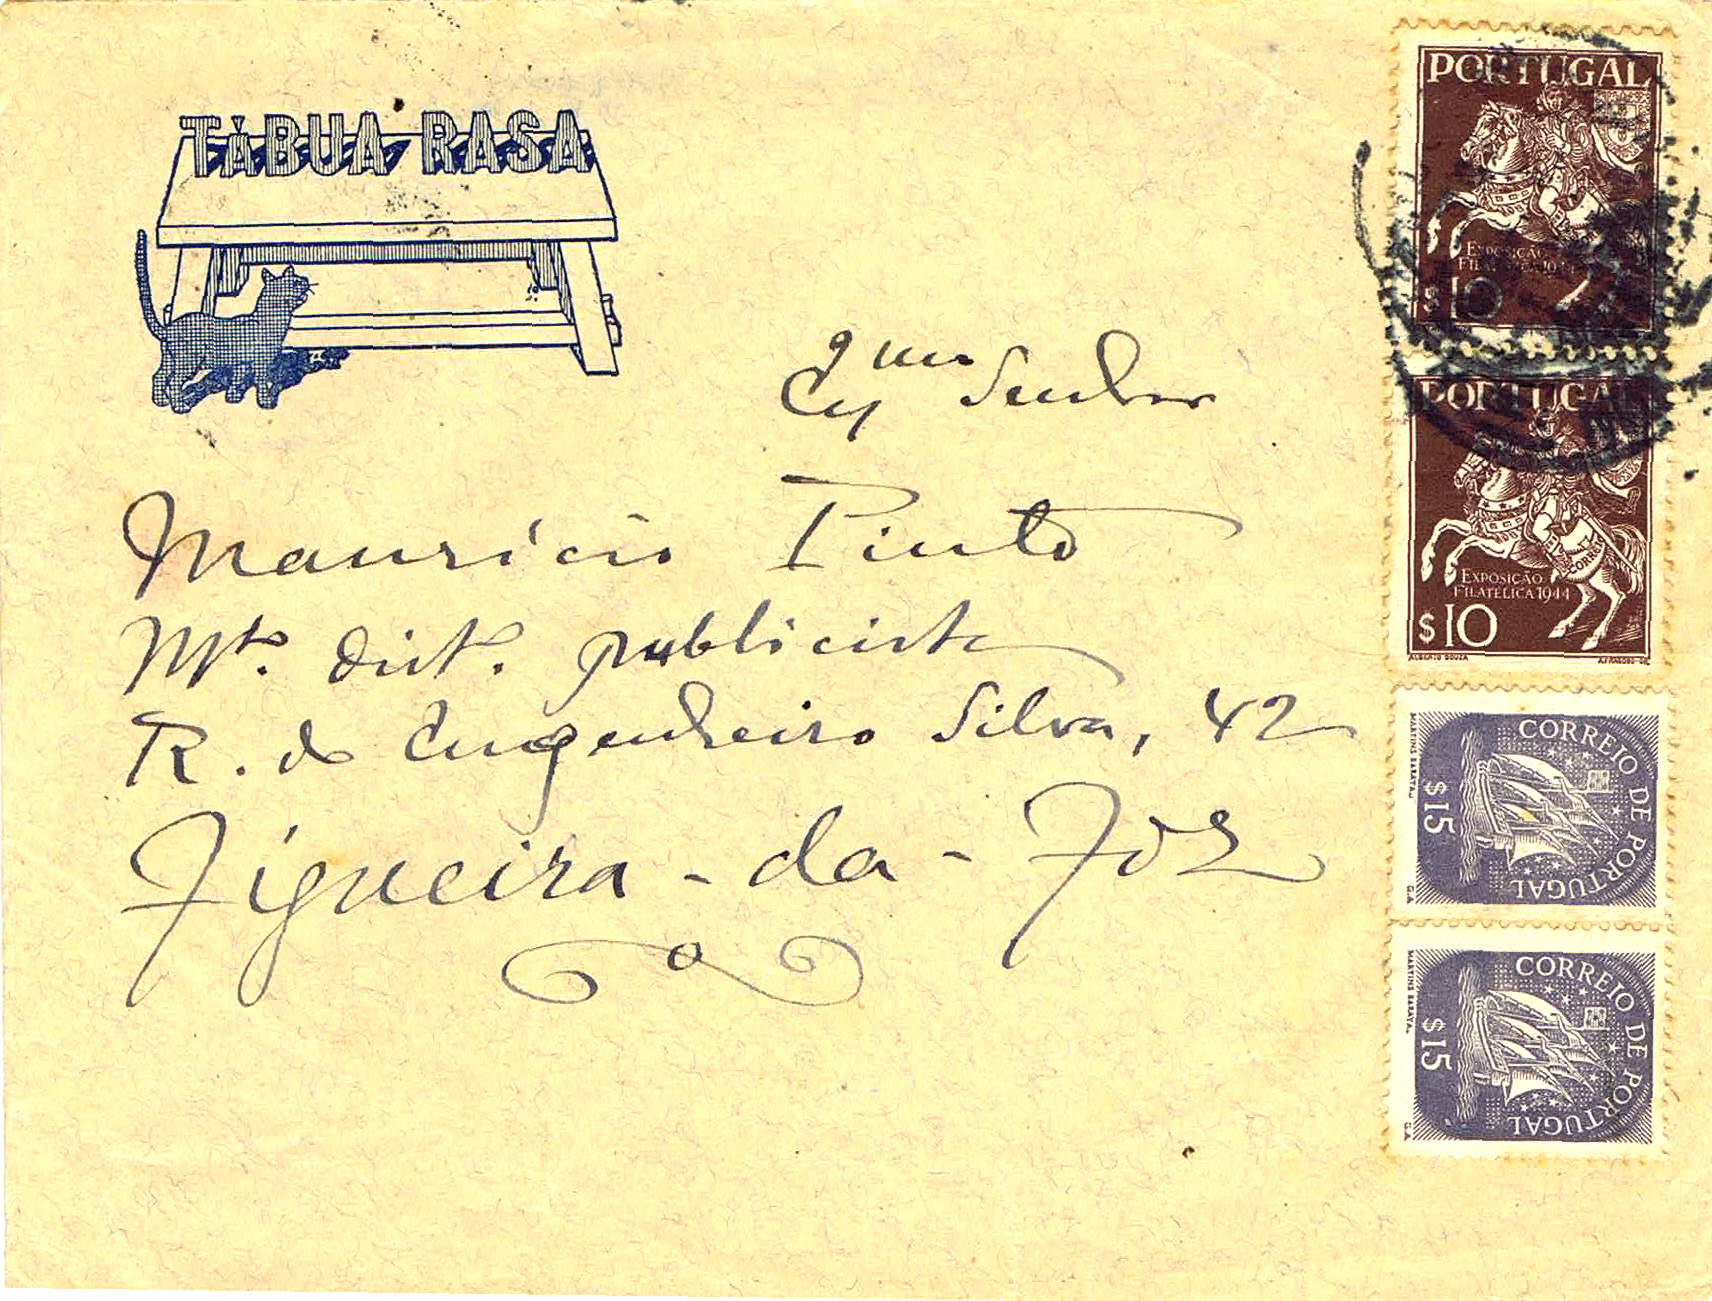 TÁBUA RASA
Exmo Senhor
Maurício Pinto
Mto. dist. publicista
R. do Engenheiro Silva, 42
Figueira-da-Foz
PORTUGAL
EXPOSIÇÃO
FILATÉLICA 1944
$10
PORTUGAL
CORREIO
EXPOSIÇÃO
FILATÉLICA 1944
$10
ALBERTO SOUZA
CORREIO DE PORTUGAL
$15
MARTINS BARATA.
G.A.
CORREIO DE PORTUGAL
$15
MARTINS BARATA.
G.A.